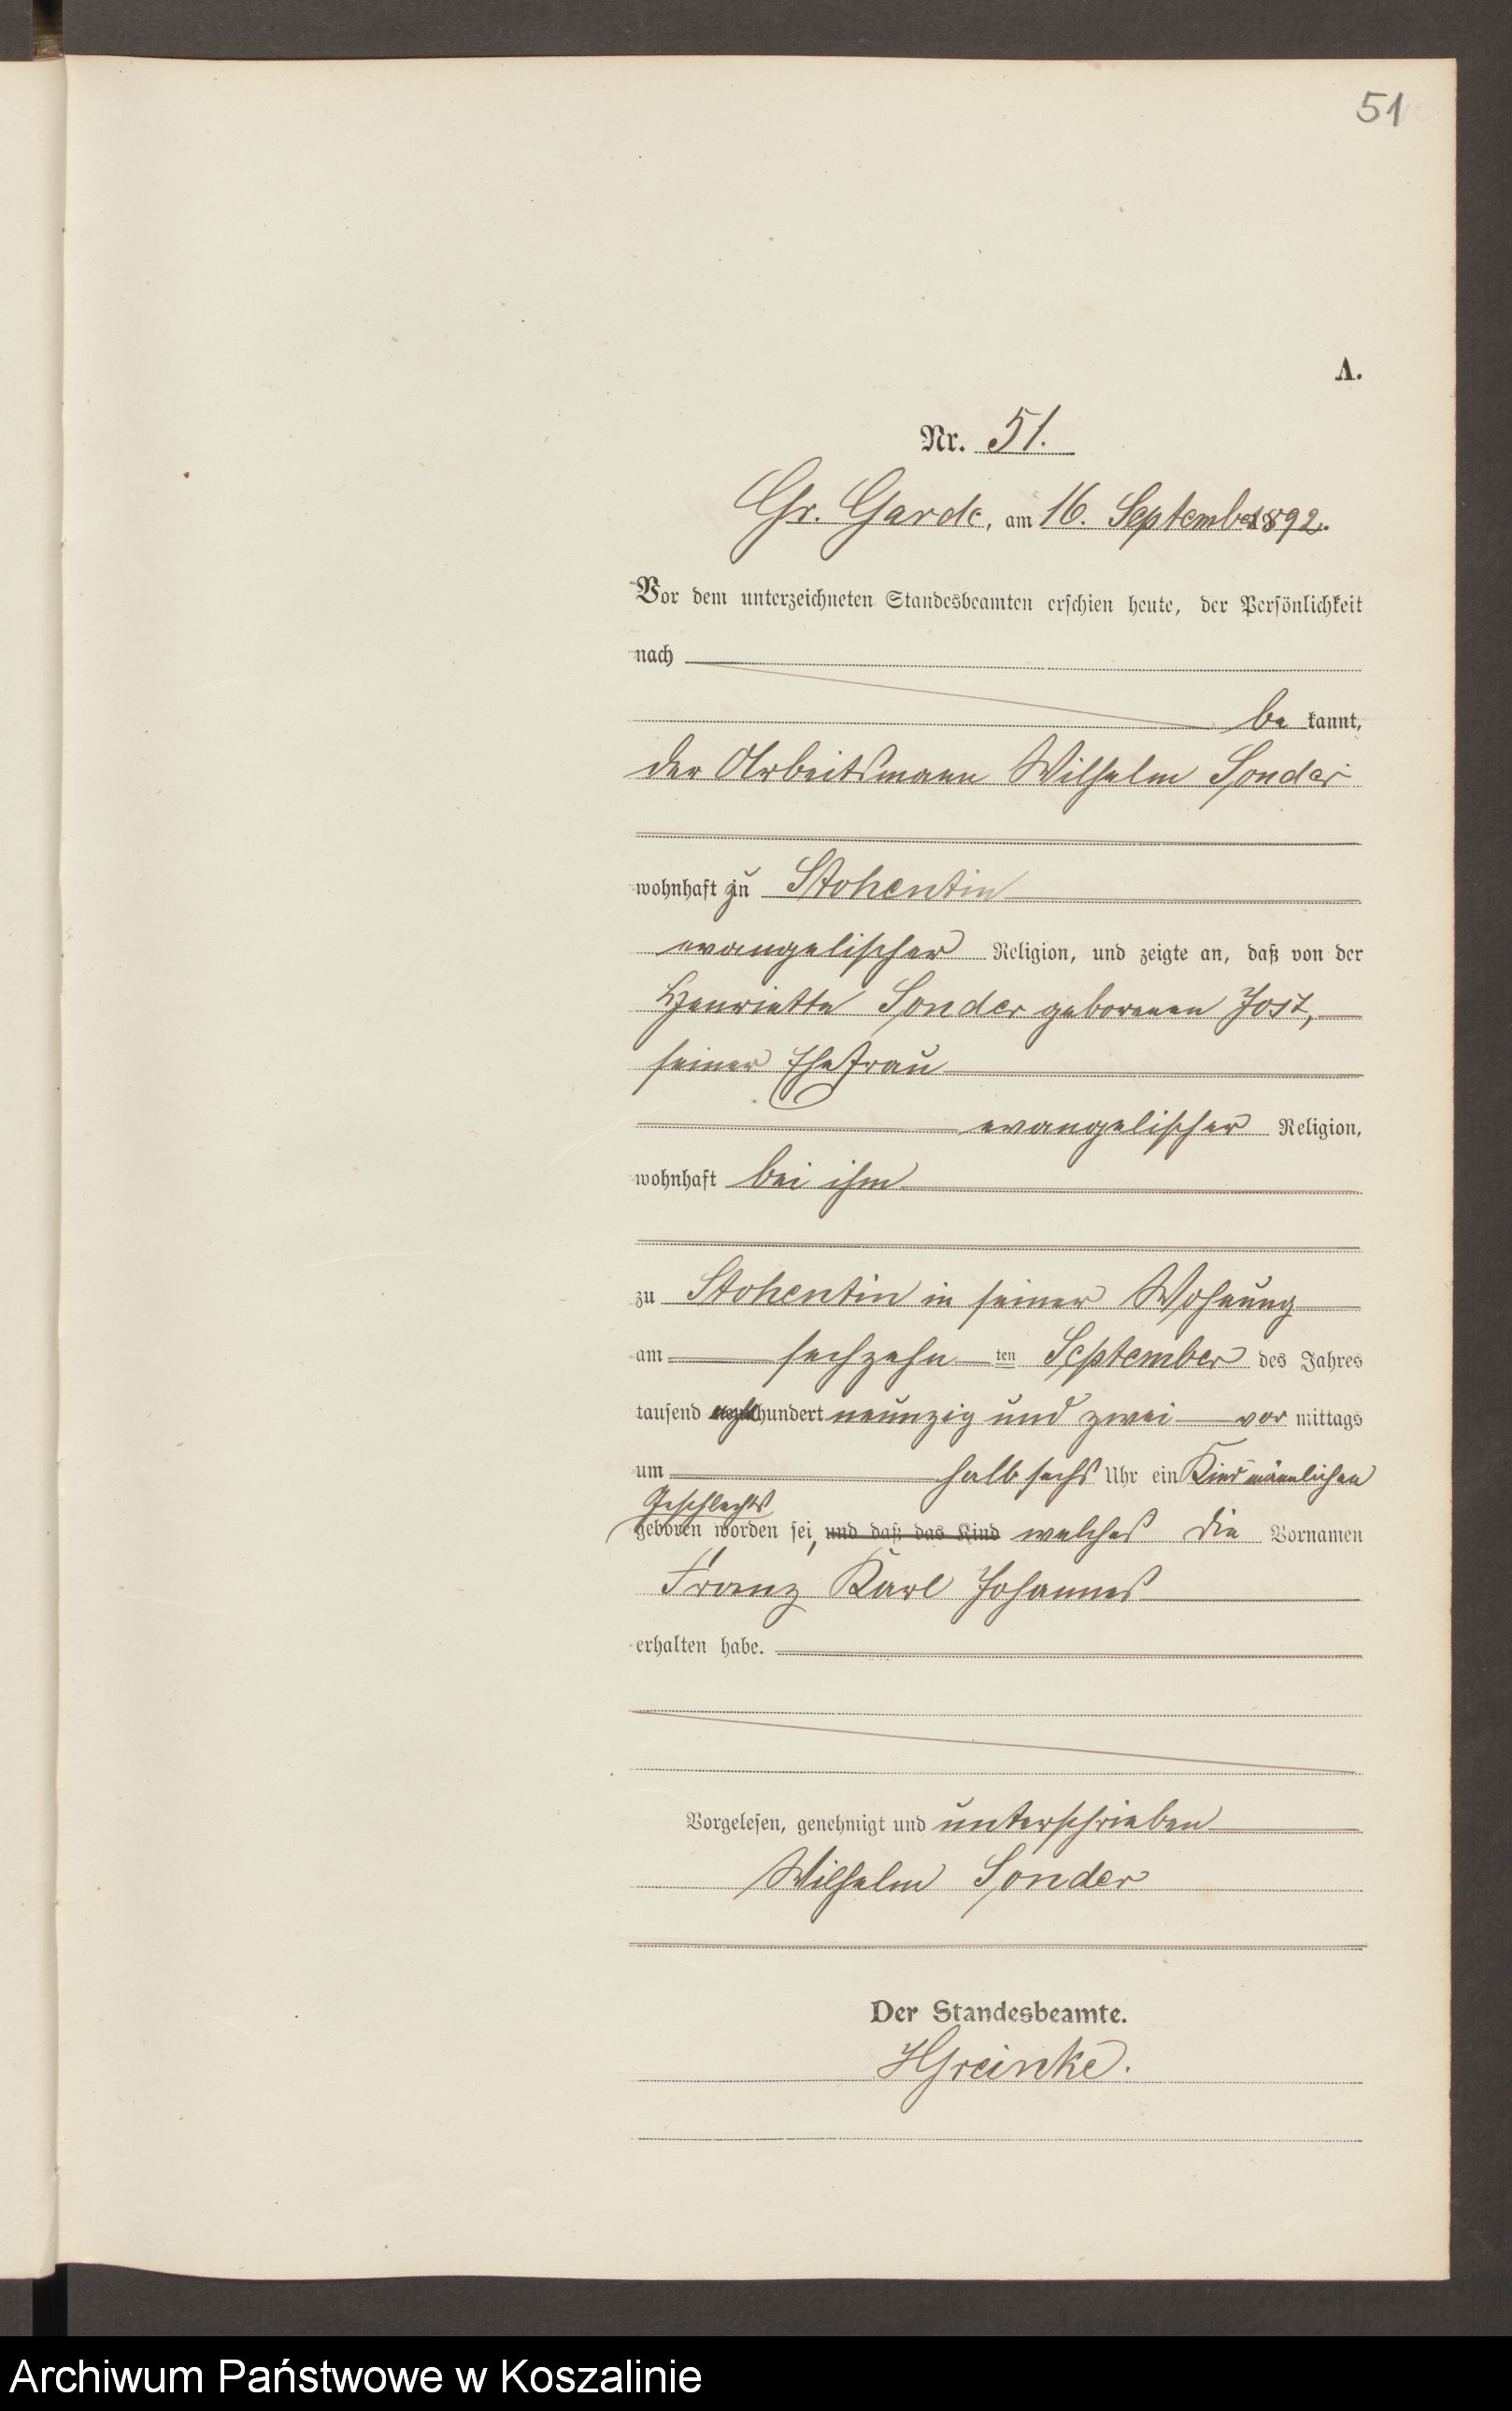 51
A.
Nr. 51.
Gr. Garde, am 16. September 1892.
Vor dem unterzeichneten Standesbeamten erschien heute, der Persönlichkeit
nach
be kannt,
der Arbeitsmann Wilhelm Sonder
wohnhaft zu Stohentin
evangelischer Religion, und zeigte an, daß von der
Henriette Sonder geborenen Jost,
seiner Ehefrau
evangelischer Religion,
wohnhaft bei ihm
zu Stohentin in seiner Wohnung
am sechzehn ten September des Jahres
tausend acht hundert neunzig und zwei vor mittags
um halb sechs Uhr ein Kind männlichen
Geschlechts
geboren worden sei, und daß das Kind welches die Vornamen
Franz Karl Johannes
erhalten habe.
Vorgelesen, genehmigt und unterschrieben
Wilhelm Sonder
Der Standesbeamte.
HGreinke.
Archiwum Państwowe w Koszalinie